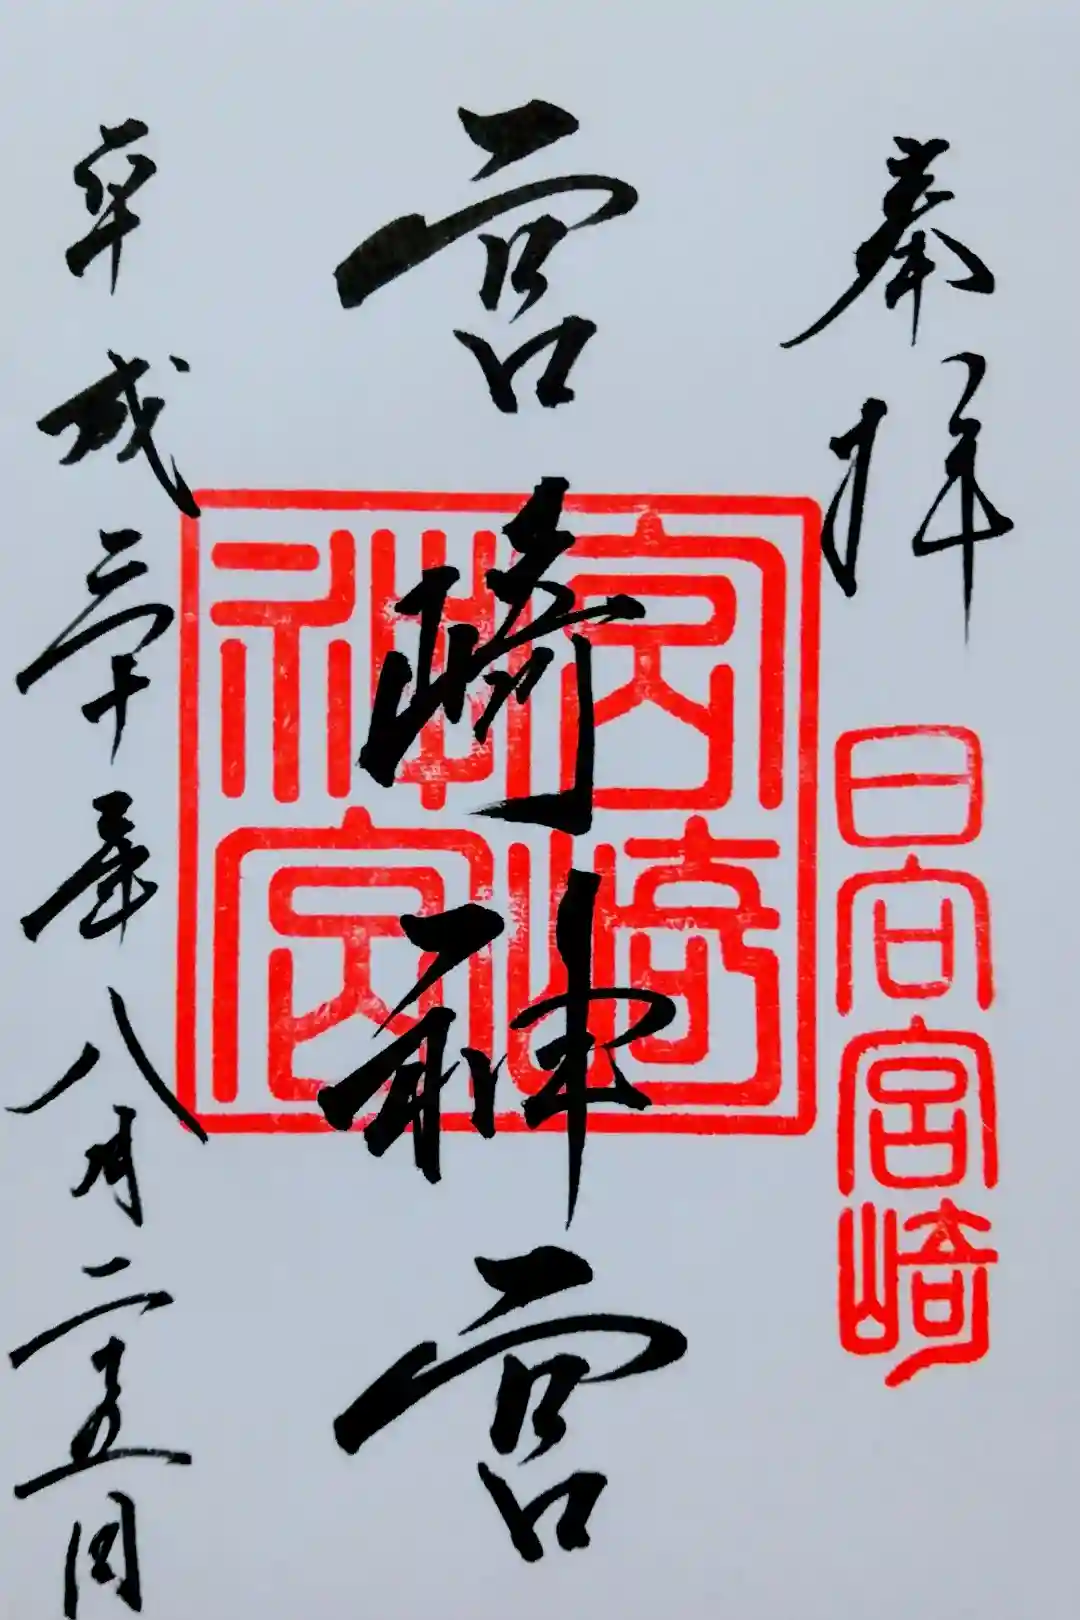 奉拝
日向宮崎
宮崎神宮
宮崎神宮
平成三十年八月二十五日